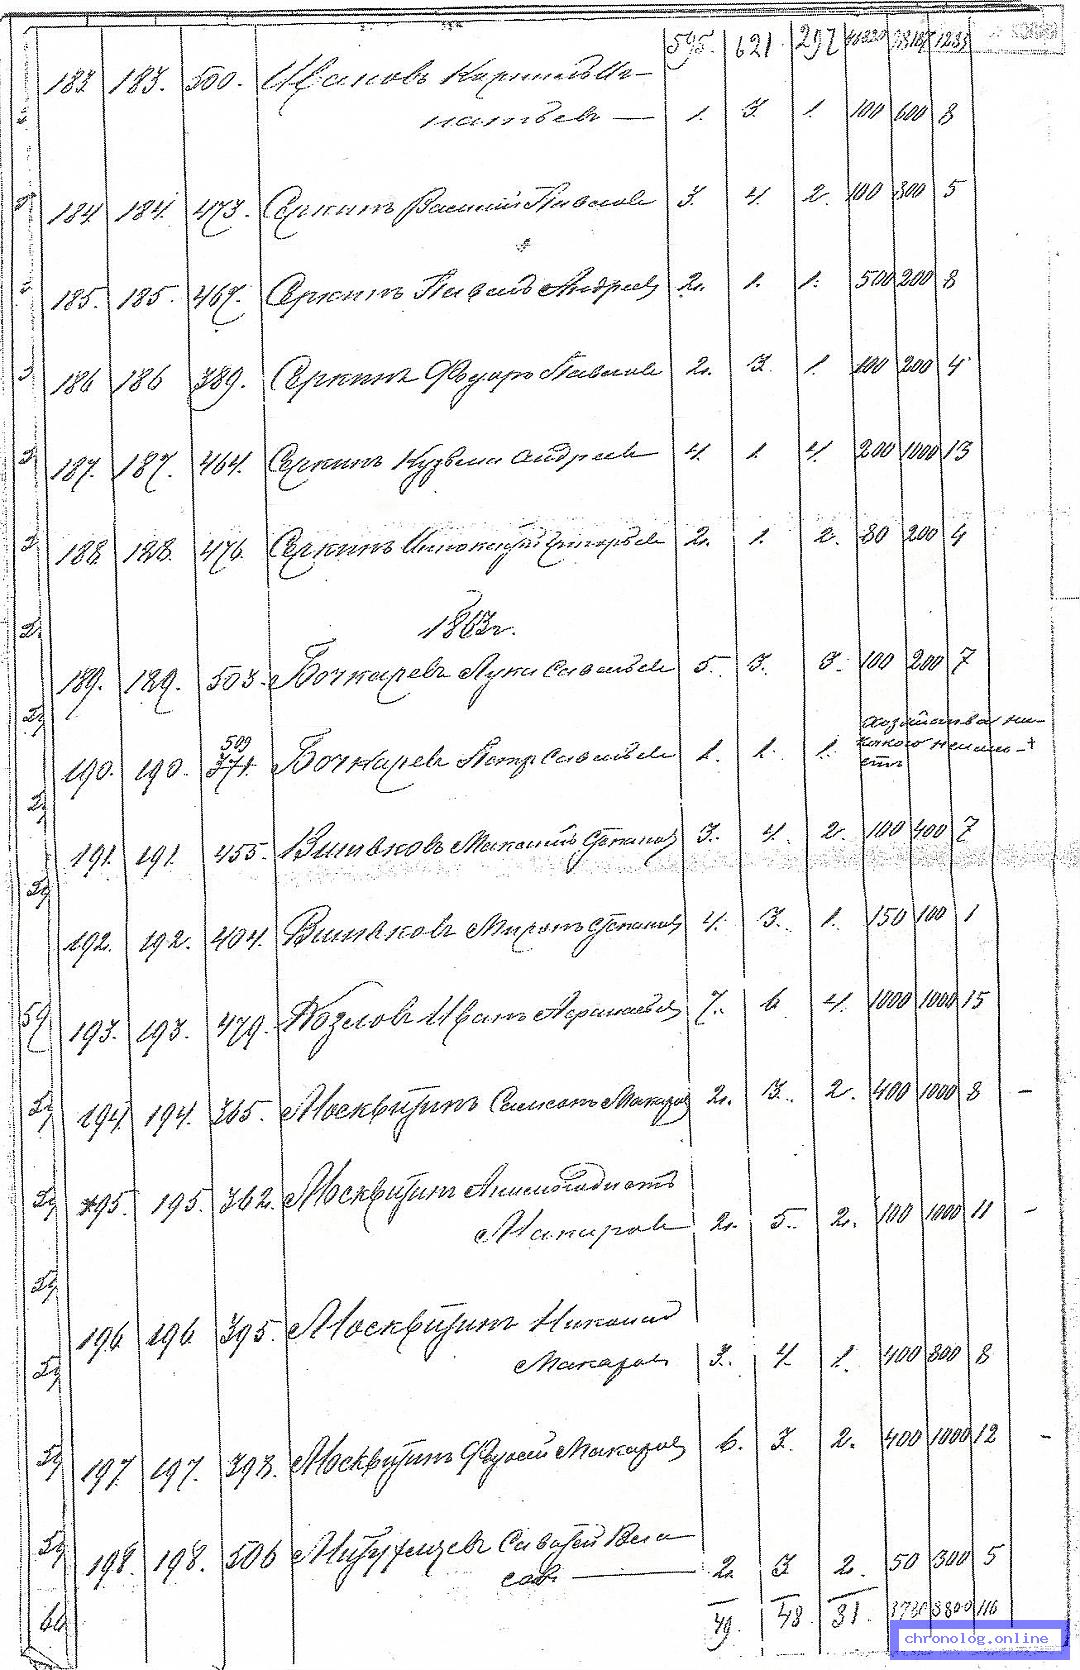 595. 621. 297
183 183. 500. Ивановъ Кирилъ Иг-
натьев — 1. 3. 1. 100 600 8
184 184. 473. Серкинъ Василий Павлов 3. 4. 2. 100 300 5
185. 185. 467. Серкинъ Павелъ Андреев 2. 1. 1. 500 200 8
186 186 389. Серкинъ Федоръ Павлов 2. 3. 1. 100 200 4
187. 187. 464. Серкинъ Кузьма Андреев 4. 1. 4. 200 1000 13
188. 188. 476. Серкинъ 2. 1. 2. 80 200 4
1863г.
189. 189. 503. Бочкаревъ Лука Савельев 5. 3. 3. 100 200 7
509
190. 190. 371. Бочкаревъ Петр Савельев 1. 1. 1. хозяйства ни-
какого неимѣ-
етъ
191. 191. 455. Вишваковъ Максимъ Степанов 3. 4. 2. 100 400 7
192. 192. 404. Вишваковъ Миронъ Степанов 4. 3. 1. 150 100 1
193. 193. 479. Козловъ Иванъ Афанасьев 7. 6 4. 1000 1000 15
194 194. 365. Москвитинъ Самсонъ Макаров 2. 3. 2. 400 1000 8 -
195. 195. 362. Москвитинъ
Макаров 2. 5. 2. 100 1000 11 -
196 196 395. Москвитинъ Николай
Макаров 3. 4. 1. 400 800 8
197 197. 398. Москвитинъ Макаров 6. 3. 2. 400 1000 12 -
198. 198. 506 Савватей Влас
сов. — 2. 3 2. 50 300 5
49. 48. 31. 3760 8800 116
chronolog.online